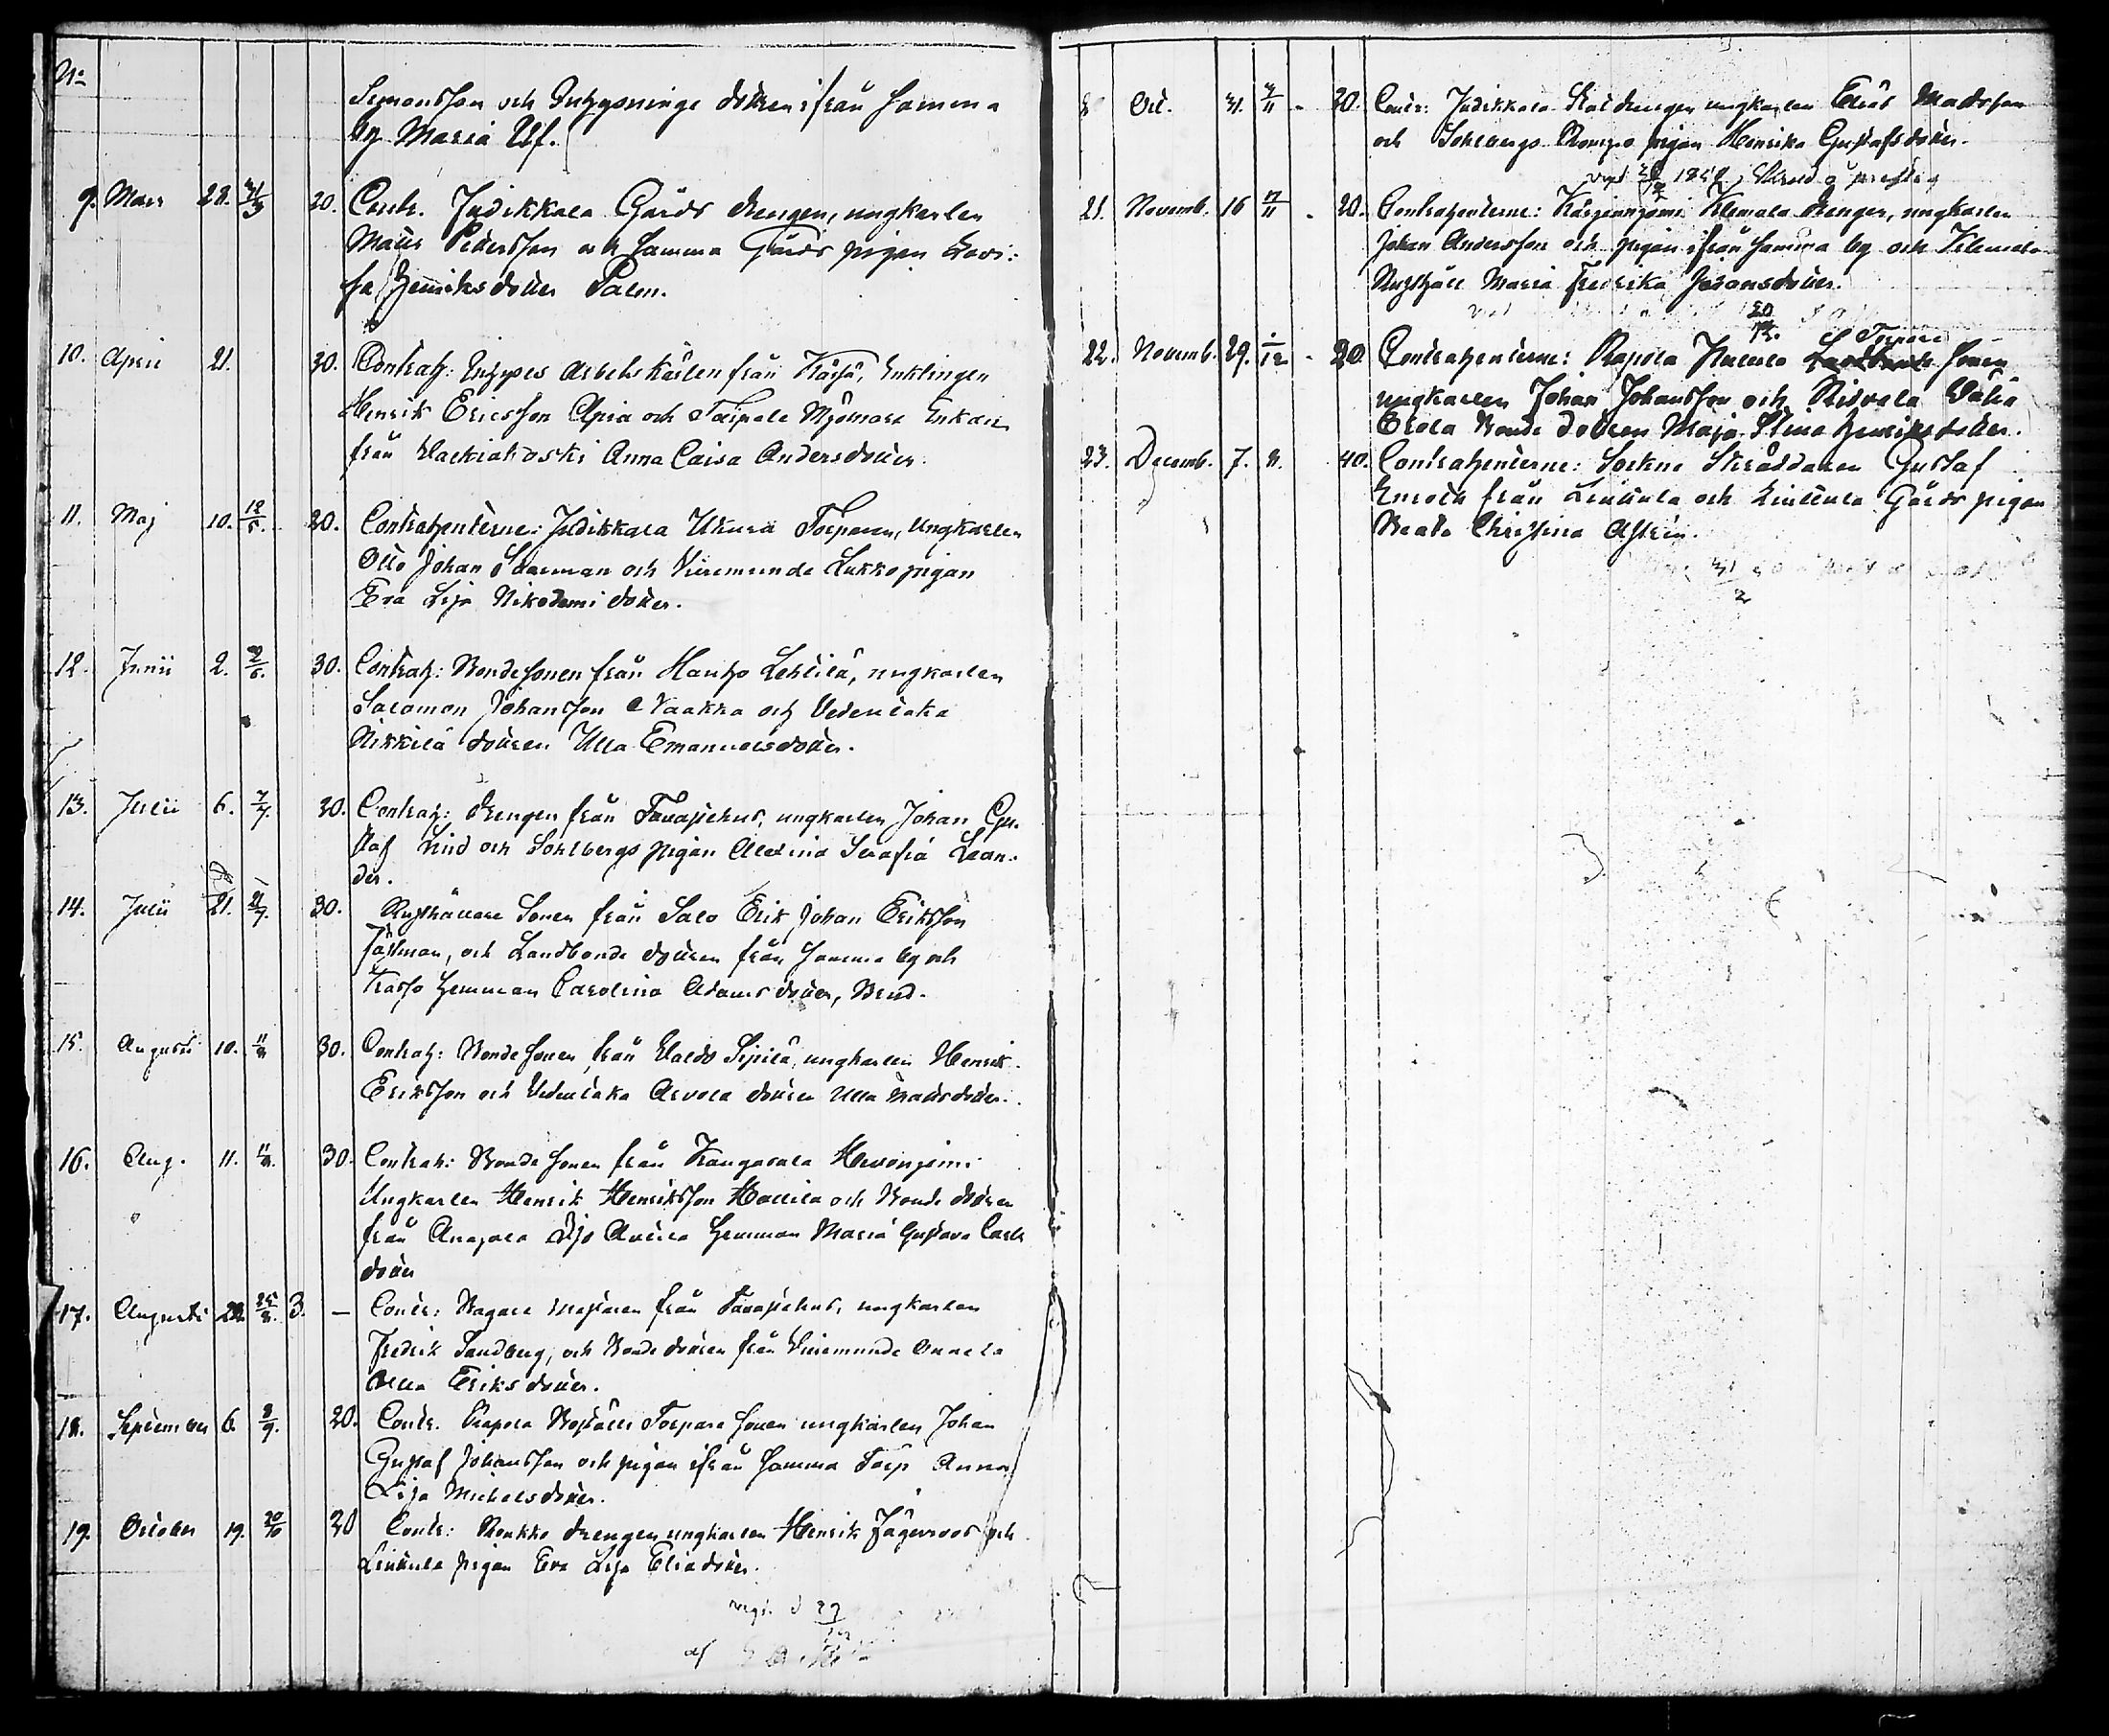 No
Symonsson och Inhysninge dottren ifrån samma
by Maria Ulf.
9. Mars 28. 31/3 20. Contr. Judikkala Gårds drengen, ungkarlen
Matts Pettersson och samma Gårds pigan Lovi:
sa Henriksdotter Palm.
10. April 21. 30. Contrah: Inhyses Arbetskarlen från Kärjä, Enklingen
Henrik Ericsson Apia och Taipale Mjömare Enkan
från Valkiakoski Anna Caisa Andersdotter.
11. Maj 10. 12/5. 20. Contrahenterne: Judikkala Ukura Torparen, Ungkarlen
Otto Johan Starman och Viremunde Lukko pigan
Eva Lisa Nikodemi dotter.
12. Junii 2. 2/6. 30. Contrah: Bondesonen från Hauho Lehtilä, ungkarlen
Salomon Johansson Naakka och Vedentaka
Nikkilä dottren Ulla Emanuelsdotter.
13. Julii 6. 7/7. 20. Contrah: Drengen från Tavastehus, ungkarlen Johan Gu-
staf Lind och Sohlbergs pigan Alexina Serafia Lean-
der.
14. Julii 21. 21/7. 30. Rusthållare Sonen från Salo Erik Johan Eriksson
Fästman, och Landbonde dottren från samma by och
Krasso Hemman Carolina Adamsdotter, Brud.
15. Augusti 10. 11/8 30. Contrah: Bondesonen från Valdo Sipilä, ungkarlen Henrik
Eriksson och Vedentaka Arvola dottren Ulla Mattsdotter.
16. Aug. 11. 11/8. 30. Contrah: Bondesonen från Kangasala Hevonjemi
Ungkarlen Henrik Henriksson Hallila och Bonde dottren
från Anajala Äijö Anttila Hemman Maria Gustava Carls
dotter
17. Augusti 24. 25/8. 3. — Contr: Bagare mästaren från Tavastehus, ungkarlen
Fredrik Sandberg, och Bonde dottren från Viremunde Annela
Ulla Eriksdotter.
18. September 6. 8/9. 20. Contr. Rapola Boställs Torpare sonen ungkarlen Johan
Gustaf Johansson och pigan ifrån samma Torp Anna
Lisa Michelsdotter.
19. October 19. 20/10 20 Contr: Roukko drengen ungkarlen Henrik Jägerroos och
Linttula pigan Eva Lisa Eliedotter.
af
Oct. 31. 4/11 - 20. Contr: Judikkala Stalldrengen ungkarlen Elias Mattsson
och Sohlbergs Rompo pigan Henrika Gustafsdotter.
21. Novemb. 16 17/11 - 20. Contrahenterne: Kärjenniemi Klemola drengen, ungkarlen
Johan Andersson och pigan ifrån samma by och Klemola
Rusthåll Maria Fredrika Joransdotter.
22. Novemb. 29. 1/12 - 20 Contrahenterne: Rapola Sonen
ungkarlen Johan Johansson och Ritvala
Erola Bonde dottren Maja Stina Henriksdotter.
23. Decemb. 7. 8. 40. Contrahenterne: Sockne Skräddaren Gustaf
från Linttula och Linttula Gårds pigan
Beata Christina